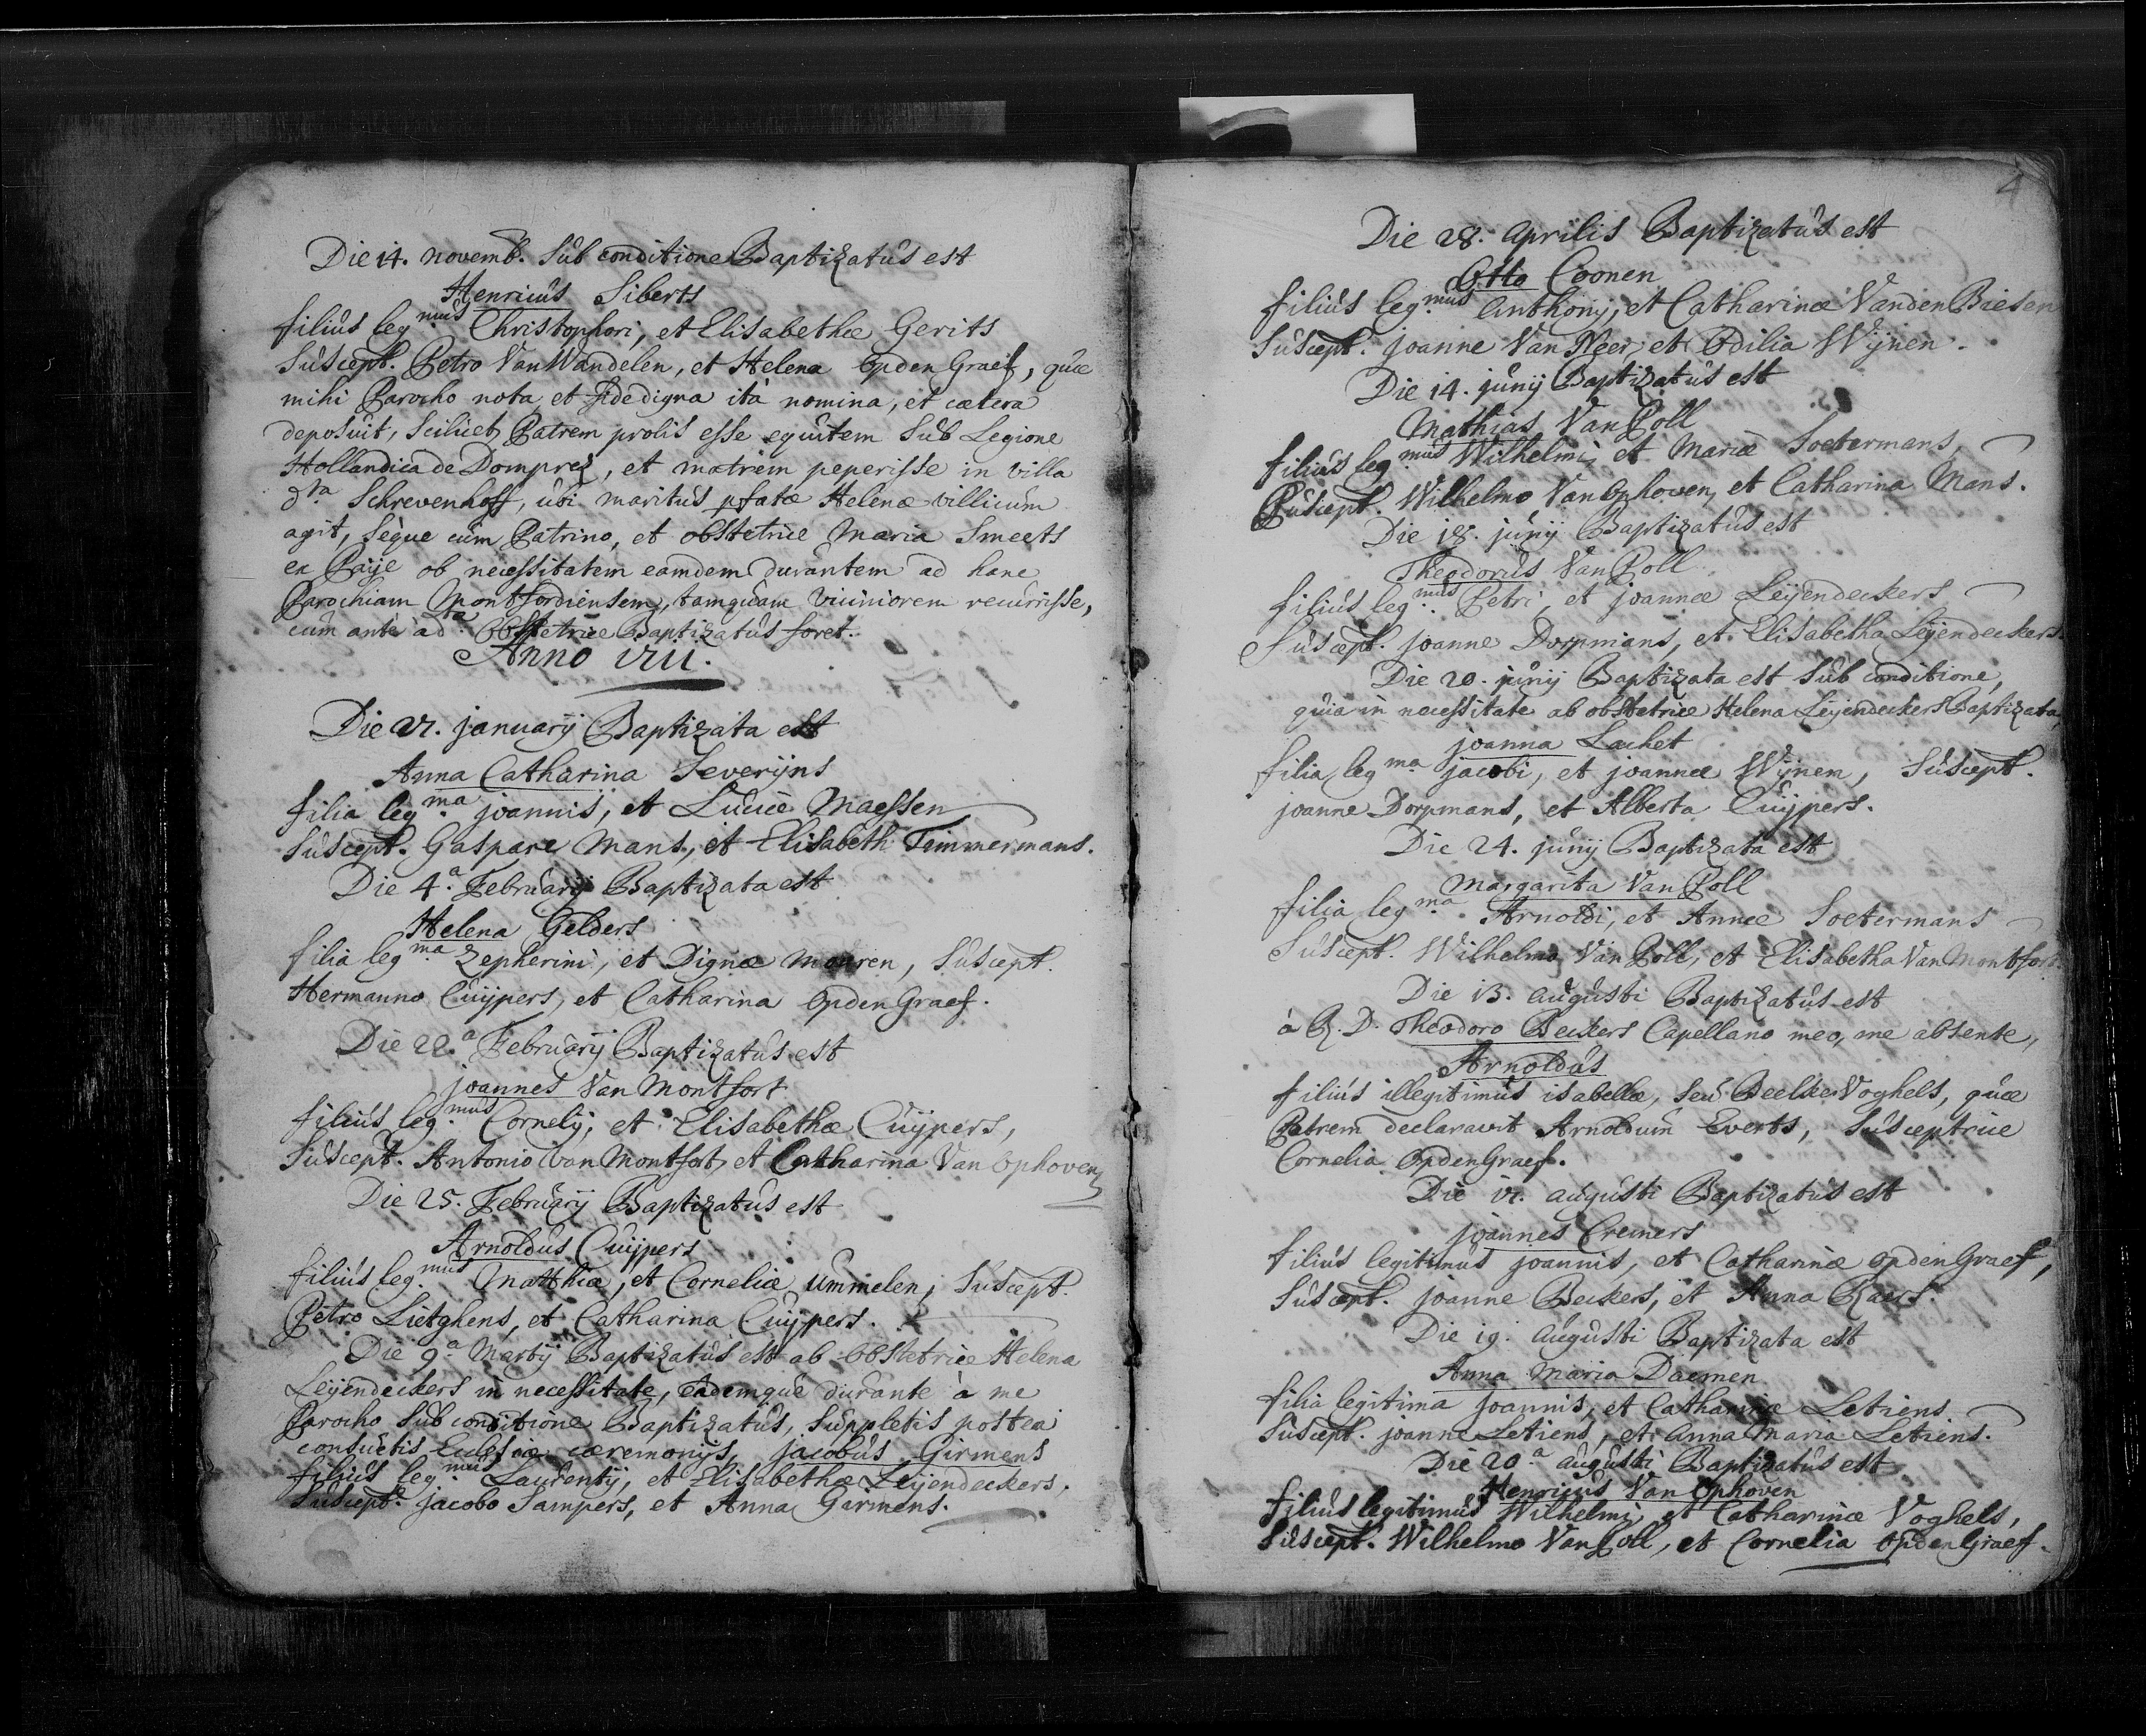 Die 14. novemb. Sub conditione Baptizatus est
Henricus Siberts
filius leg.mus Christophori, et Elisabethæ Gerits
Suscept. Petro Van Wandelen, et Helena Opden Graef, quæ
mihi Parocho nota, et fide digna ità nomina, et cætera
deposuit, Scilicet Patrem prolis esse equitem Sub Legione
Hollandica de Domprez, et matrem peperisse in villa
d.ta Schrevenhoff, ubi maritus pfatæ Helenæ villicum
agit, Seque cum Patrino, et obstetrice Maria Smeets
ex Paije ob necessitatem eamdem durantem ad hanc
Parochiam Montfordiensem, tamquam viciniorem recurrisse,
cum antè a d.ta Obstetrice Baptizatus foret.
Anno
Die 21. januarij Baptizata est
Anna Catharina Severijns
filia leg.ma joannis, et Luciæ Maessen
Suscept. Gaspare Mans, et Elisabeth Timmermans.
Die 4.a Februarij Baptizata est
Helena Gelders
filia leg.ma Zepherini, et Dignæ Mooren, Suscept.
Hermanno Cuijpers, et Catharina Opden Graef.
Die 22.a Februarij Baptizatus est
joannes Van Montfort
filius leg.mus Cornelij, et Elisabethæ Cuijpers,
Suscept. Antonio Van Montfort, et Catharina Van Ophoven
Die 25. Februarij Baptizatus est
Arnoldus Cuijpers
filius leg.mus Matthiæ, et Corneliæ Ummelen, Suscept.
Petro Lietghens, et Catharina Cuijpers.
Die 9.a Martij Baptizatus est ab Obstetrice Helena
Leijendeckers in necessitate, eademque durante à me
Parocho Sub conditione Baptizatus, Suppletis postea
consuetis Eclesiæ cæremonijs, jacobus Girmens
filius leg.mus Laurentij, et Elisabethæ Leijendeckers,
Suscept. jacobo Sampers, et Anna Girmens.
4
Die 28. Aprilis Baptizatus est
Otto Coonen
filius leg.mus Anthonij, et Catharinæ Vanden Biesen
Suscept. joanne Van Neer, et Odilia Wijnen.
Die 14. junij Baptizatus est
Mathias Van Poll
filius leg.mus Wilhelmi, et Mariæ Soetermans,
Suscept. Wilhelmo Van Ophoven, et Catharina Mans.
Die 18. junij Baptizatus est
Theodorus Van Poll
filius leg.mus Petri, et joannæ Leijendeckers
Suscept. joanne Dorpmans, et Elisabetha Leijendeckers.
Die 20. junij Baptizata est Sub conditione,
quia in necessitate ab obstetrice Helena Leijendeckers Baptizata,
joanna Lachet
filia leg.ma jacobi, et joannæ Wijnen, Suscept.
joanne Dorpmans, et Alberta Cuijpers.
Die 24. junij Baptizata est
Margarita Van Poll
filia leg.ma Arnoldi, et Annæ Soetermans
Suscept. Wilhelmo Van Poll, et Elisabetha Van Montfort.
Die 13. Augusti Baptizatus est
à R. D. Theodoro Beckers Capellano meo, me absente,
Arnoldus
filius illegitimus isabellæ, seu Beelke Voghels, quæ
Patrem declaravit Arnoldum Everts, Susceptrice
Cornelia Opden Graef.
Die augusti Baptizatus est
joannes Cremers
filius legitimus joannis, et Catharinæ opden Graef,
Suscept. joanne Beckers, et Anna Raets.
Die 19. Augusti Baptizata est
Anna Maria Daemen
filia legitima joannis, et Catharinæ Letiens
Suscept. joanne Letiens, et Anna Maria Letiens.
Die 20.a augusti Baptizatus est
Henricus Van Ophoven
filius legitimus Wilhelmi, et Catharinæ Voghels,
Suscept. Wilhelmo Van Poll, et Cornelia Opden Graef.